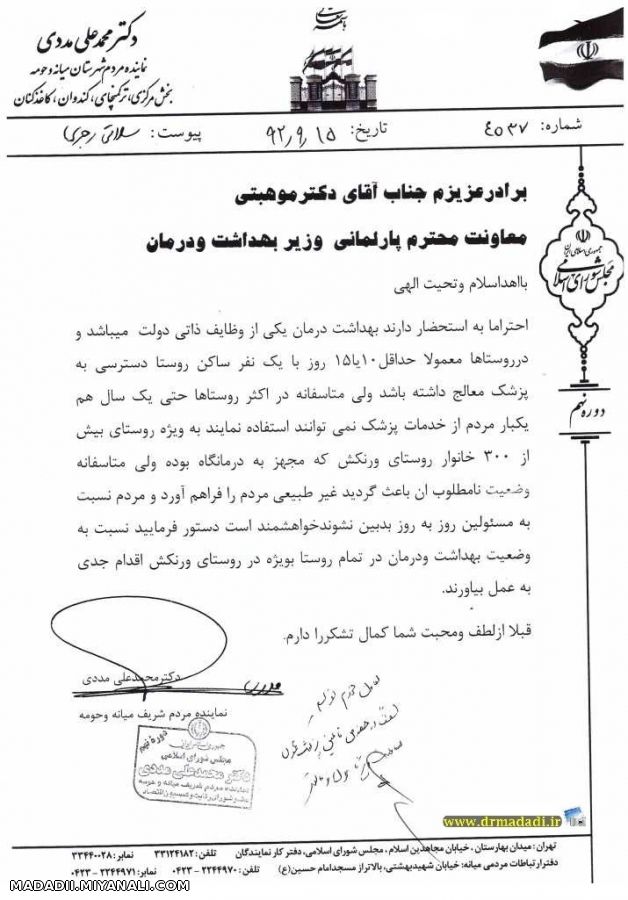 باسمه تعالی
دکتر محمد علی مددی
نماینده مردم شهرستان میانه و حومه
بخش مرکزی، ترکمنچای، کندوان، کاغذکنان
شماره: ۴۵۳۷
تاریخ: ۹۲/۹/۱۵
پیوست:
جمهوری اسلامی ایران
مجلس شورای اسلامی
دوره نهم
برادرعزیزم جناب آقای دکترموهبتی
معاونت محترم پارلمانی وزیر بهداشت ودرمان
بااهداسلام وتحیت الهی
احتراما به استحضار دارند بهداشت درمان یکی از وظایف ذاتی دولت میباشد و
درروستاها معمولا حداقل۱۰یا۱۵ روز با یک نفر ساکن روستا دسترسی به
پزشک معالج داشته باشد ولی متاسفانه در اکثر روستاها حتی یک سال هم
یکبار مردم از خدمات پزشک نمی توانند استفاده نمایند به ویژه روستای بیش
از ۳۰۰ خانوار روستای ورنکش که مجهز به درمانگاه بوده ولی متاسفانه
وضعیت نامطلوب ان باعث گردید غیر طبیعی مردم را فراهم آورد و مردم نسبت
به مسئولین روز به روز بدبین نشوندخواهشمند است دستور فرمایید نسبت به
وضعیت بهداشت ودرمان در تمام روستا بویژه در روستای ورنکش اقدام جدی
به عمل بیاورند.
قبلا ازلطف ومحبت شما کمال تشکررا دارم.
دکترمحمدعلی مددی
نماینده مردم شریف میانه وحومه
دوره نهم
مجلس شورای اسلامی
دکتر محمدعلی مددی
نماینده مردم شریف میانه و حومه
www.drmadadi.ir
تهران: میدان بهارستان ، خیابان مجاهدین اسلام ، مجلس شورای اسلامی، دفتر کار نمایندگان تلفن: ۳۳۱۲۴۱۸۲ نمابر: ۳۳۴۴۰۰۲۸
دفترارتباطات مردمی میانه: خیابان شهیدبهشتی، بالاتراز مسجدامام حسین(ع) تلفن: ۲۲۴۴۹۷۰ - ۰۴۲۳ نمابر: ۲۲۴۴۹۷۱ - ۰۴۲۳
MADADII.MIYANALI.COM